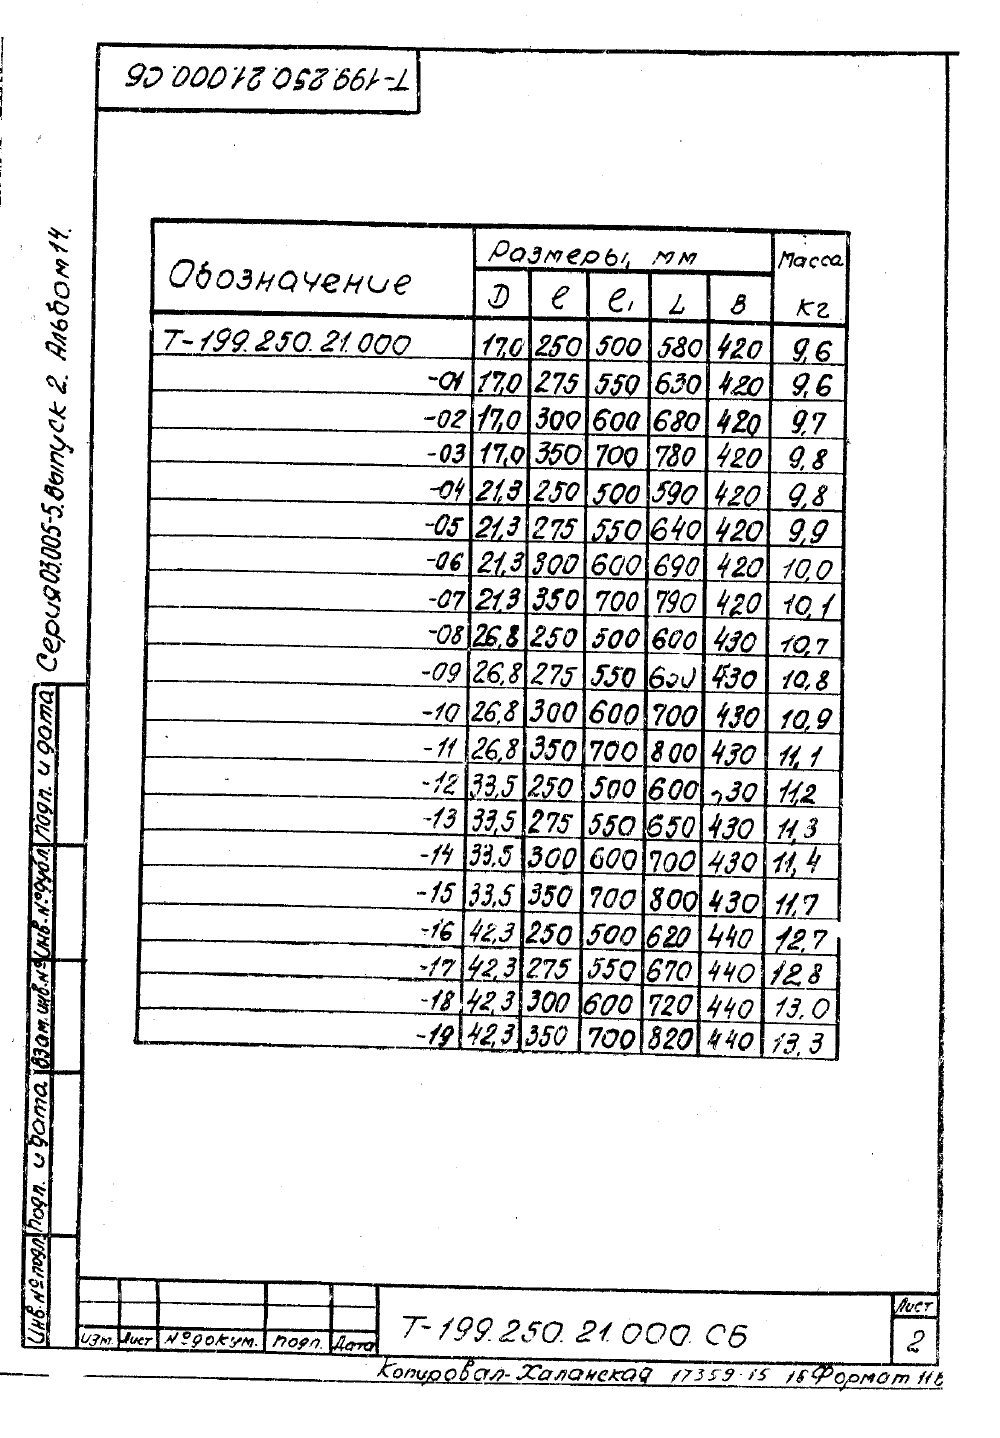 Т-199.250.21.000.СБ
Серия 03.005-5. Выпуск 2. Альбом 14.
Обозначение Размеры, мм Масса кг
D ℓ ℓ₁ L B
Т-199.250.21.000 17,0 250 500 580 420 9,6
-01 17,0 275 550 630 420 9,6
-02 17,0 300 600 680 420 9,7
-03 17,0 350 700 780 420 9,8
-04 21,3 250 500 590 420 9,8
-05 21,3 275 550 640 420 9,9
-06 21,3 300 600 690 420 10,0
-07 21,3 350 700 790 420 10,1
-08 26,8 250 500 600 430 10,7
-09 26,8 275 550 430 10,8
-10 26,8 300 600 700 430 10,9
-11 26,8 350 700 800 430 11,1
-12 33,5 250 500 600 11,2
-13 33,5 275 550 650 430 11,3
-14 33,5 300 600 700 430 11,4
-15 33,5 350 700 800 430 11,7
-16 42,3 250 500 620 440 12,7
-17 42,3 275 550 670 440 12,8
-18 42,3 300 600 720 440 13.0
-19 42,3 350 700 820 440 13,3
Инв.№подл. Подп. и дата Взам.инв.№ Инв.№дубл. Подп. и дата
Изм. Лист №докум. Подп. Дата
Т-199.250.21.000.СБ
Лист
2
Копировал-Халанская 17359-15 Формат 11